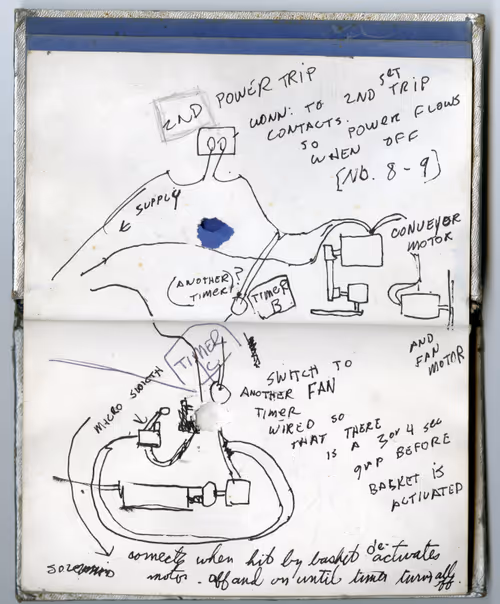 2ND POWER TRIP
CONN: TO 2ND SET TRIP
CONTACTS.
SO POWER FLOWS
WHEN OFF
[NO. 8-9]
SUPPLY
CONVEYER
MOTOR
(ANOTHER
TIMER)?
TIMER
B
AND
FAN
MOTOR
TIMER
C
MICRO SWITCH
SWITCH TO
ANOTHER FAN
TIMER
WIRED SO
THAT THERE
IS A 3 or 4 sec
gap BEFORE
BASKET IS
ACTIVATED
when hit by basket de-activates
motor - off and on until timer turns off